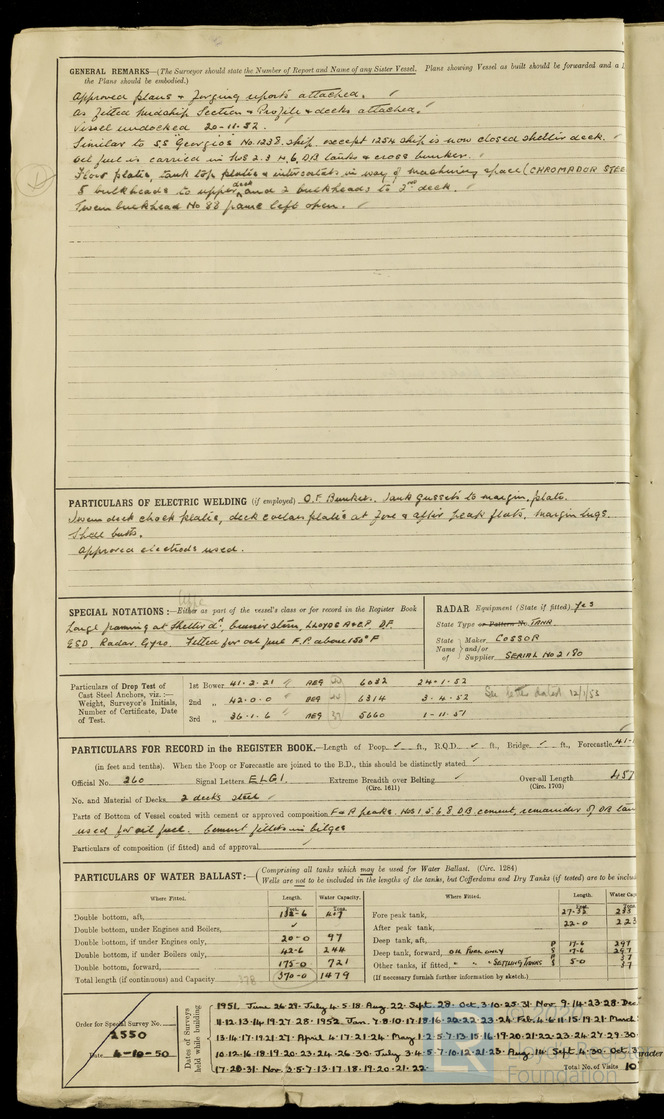 GENERAL REMARKS—(The Surveyor should state the Number of Report and Name of any Sister Vessel. Plans showing Vessel as built should be forwarded and a
the Plans should be embodied.)
Approved plans & forging reports attached. ✓
As fitted Midship Section & Profile & decks attached. ✓
Vessel undocked 20-11-52. ✓
Similar to SS "Georgios" No. 1238 ship except 1254 ship is now closed shelter deck. ✓
Oil fuel is carried in Nos 2.3 4.6, DB tanks & cross bunker. ✓
Floor plates, tank top plates & intercostals in way of machinery space (CHROMADOR STEE
5 bulkheads to upper deck and 2 bulkheads to 2nd deck. ✓
Tween bulkhead No 88 frame left open. ✓
PARTICULARS OF ELECTRIC WELDING (if employed) O.F Bunker. Tank gussets to margin plate.
Tween deck chock plates, deck collar plates at fore & after peak flats, margin lugs.
Shell butts.
Approved electrods used.
SPECIAL NOTATIONS:—Either as part of the vessel's class or for record in the Register Book
Longl framing at Shelter dk, cruiser stern, LLOYDS A&CP DF
ESD Radar Gyro. Fitted for oil fuel F.P. above 150°F
RADAR Equipment (State if fitted) Yes
State Type or Pattern No. TANR
State Name of Maker and/or Supplier COSSOR
SERIAL No 2180
Particulars of Drop Test of Cast Steel Anchors, viz.:—Weight, Surveyor's Initials, Number of Certificate, Date of Test.
1st Bower 41-2-21 AEG 6082 24-1-52
2nd „ 42-0-0 AEG 6314 3-4-52
3rd „ 36-1-6 AEG 5660 1-11-51
See letter dated 12/1/53
PARTICULARS FOR RECORD in the REGISTER BOOK.—Length of Poop ✓ ft., R.Q.D. ✓ ft., Bridge ✓ ft., Forecastle 41-1
(in feet and tenths). When the Poop or Forecastle are joined to the B.D., this should be distinctly stated ✓
Official No. 260 Signal Letters ELGI Extreme Breadth over Belting ✓ Over-all Length 457
(Circ. 1611) (Circ. 1703)
No. and Material of Decks 2 decks steel ✓
Parts of Bottom of Vessel coated with cement or approved composition F & A peaks. Nos 1 5 6 8 DB cement, remainder of DB tan
used for oil fuel. Cement fillets in bilges
Particulars of composition (if fitted) and of approval ✓
PARTICULARS OF WATER BALLAST:— (Comprising all tanks which may be used for Water Ballast. (Circ. 1284)
Wells are not to be included in the lengths of the tanks, but Cofferdams and Dry Tanks (if tested) are to be includ
Where Fitted. Length. Water Capacity. Where Fitted. Length. Water Cap
Feet. Tons. Feet. Tons.
Double bottom, aft, 132-6 417
Double bottom, under Engines and Boilers, ✓
Double bottom, if under Engines only, 20-0 97
Double bottom, if under Boilers only, 42-6 244
Double bottom, forward, 175-0 721
Total length (if continuous) and Capacity 378 370-0 1479
Fore peak tank, 27-32 238
After peak tank, 22-0 223
Deep tank, aft, P 17-6 297
Deep tank, forward, OIL FUEL ONLY S 17-6 297
Other tanks, if fitted, " " SETTLING TANKS P S 5-0 37 37
(If necessary furnish further information by sketch.)
Order for Special Survey No. 2550
Date 4-10-50
Dates of Surveys held while building
1951. June 26 29. July 4.5.18 Aug. 22. Sept. 28. Oct. 3.10.25.31 Nov. 9.14.23.28. Dec
11.12.13.14.19.27.28. 1952. Jan. 7.8.10.17.18.16.20.22.23.24. Feb. 4.6.11.15.19.21. March
13.14.17.19.21.27. April 4.17.21.24. May 1.2.5.7.13.15.16.19.20.21.22.23.24.27.29.30
10.12.16.18.19.20.23.24.26.30. July 3.4.5.7.10.12.21.23. Aug. 14. Sept. 4.30. Oct. 3
17.20.31. Nov. 3.5.7.13.17.18.19.20.21.22.
Total No. of Visits 10
Foundation